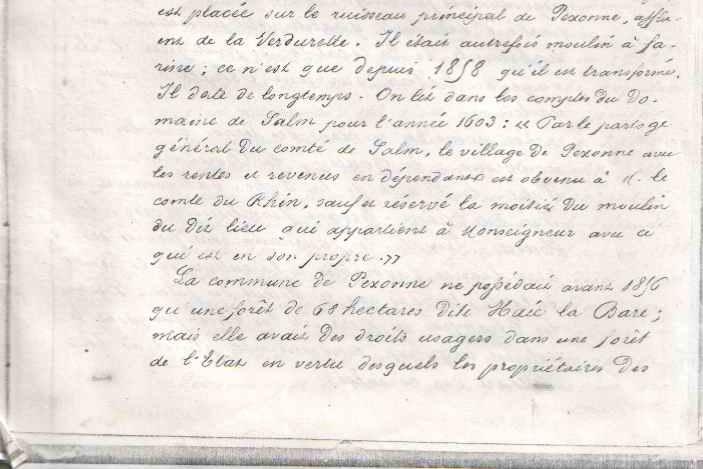 est placée sur le ruisseau principal de Pexonne, afflu-
ent de la Verdurette. Il était autrefois moulin à fa-
rine ; ce n'est que depuis 1858 qu'il est transformé.
Il date de longtemps. On lit dans les comptes du Do-
maine de Salm pour l'année 1603 : « Par le partage
général du comté de Salm, le village de Pexonne avec
les rentes et revenus en dépendants est obvenu à M. le
comte du Rhin, sauf et réservé la moitié du moulin
du dit lieu qui appartient à Monseigneur avec ci
qui est en son propre. »
La commune de Pexonne ne possédait avant 1856
qu'une forêt de 68 hectares dite Haie la Bare ;
mais elle avait des droits usagers dans une forêt
de l'Etat en vertu desquels les propriétaires des